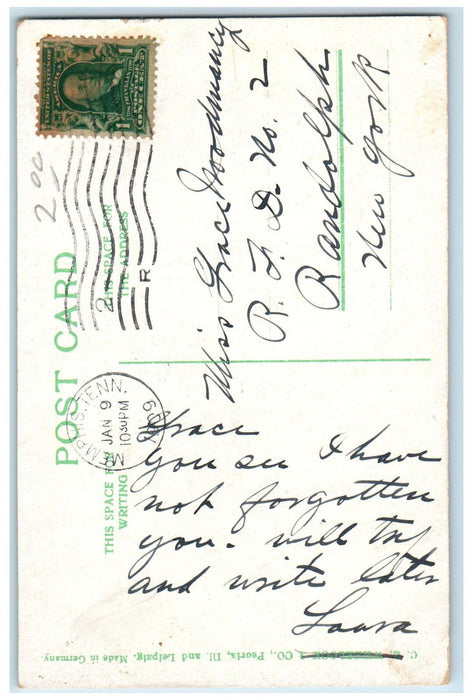 POST CARD
THIS SPACE FOR
WRITING
THIS SPACE FOR
THE ADDRESS
2 00
MEMPHIS, TENN.
JAN 9
10 30 PM
1909
2
R
Miss Grace Woodmancy
R. F. D. No. 2
Randolph
New York
Grace
You see I have
not forgotten
you. will try
and write later
Laura
& CO., Peoria, Ill. and Leipzig. Made in Germany.